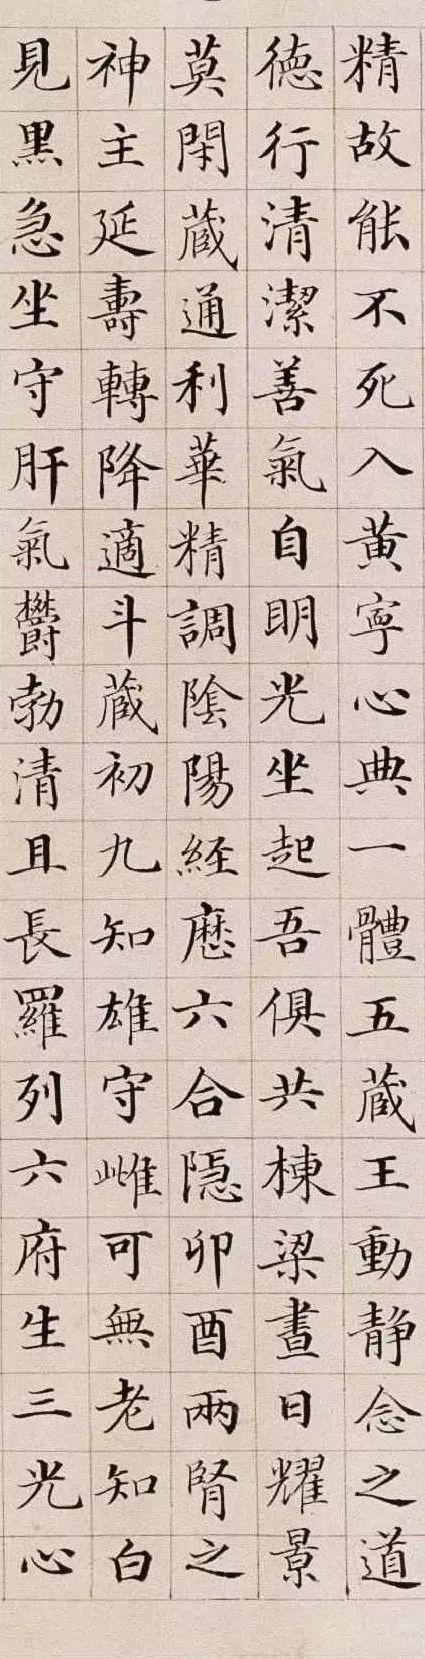 精故能不死入黄寧心典一體五蔵王動静念之道
徳行清潔善氣自明光坐起吾俱共棟梁晝日耀景
莫閑蔵通利華精調陰陽経歴六合隠卯酉兩腎之
神主延壽轉降適斗蔵初九知雄守雌可無老知白
見黒急坐守肝氣欝勃清且長羅列六府生三光心